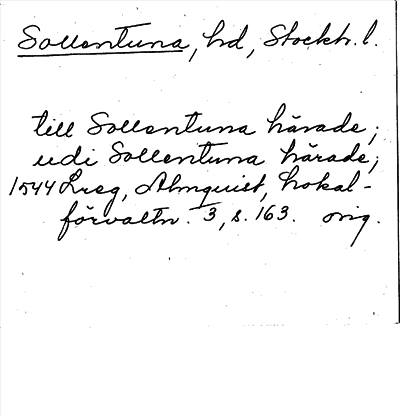 Sollentuna, hd, Stockh. l.
till Sollentuna härade;
udi Sollentuna härade;
1544 Lreg, Almquist, Lokal-
förvaltn. 3, s. 163. orig.